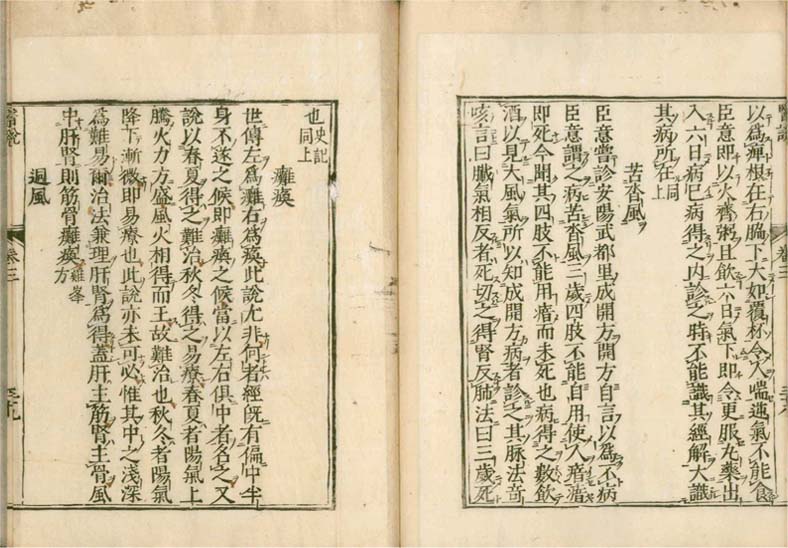 以爲痺根在右脇下大如覆杯令人喘逆氣不能食
臣意即以火齊粥且飲六日氣下即令更服丸藥出
入六日病已病得之内診之時不能識其經解大識
其病所在同上
苦沓風
臣意嘗診安陽武都里成開方開方自言以爲不病
臣意謂之病苦沓風三歲四肢不能自用使人瘖瘖
即死今聞其四肢不能用瘖而未死也病得之數飲
酒以見大風氣所以知成開方病者診之其脉法竒
咳言曰臓氣相反者死切之得腎反肺法曰三歲死
也史記同上
癱瘓
世傳左爲癱右爲瘓此說尤非何者經既有偏中半
身不遂之候即癱瘓之候當以左右俱中者名之又
說以春夏得之難治秋冬得之易療春夏者陽氣上
騰火力方盛風火相得而王故難治也秋冬者陽氣
降下漸微即易療也此說亦未可必惟其中之淺深
爲難易爾治法兼理肝腎爲得蓋肝主筋腎主骨風
中肝腎則筋骨癱瘓雞峯方
迴風
醫說
卷三
三十九